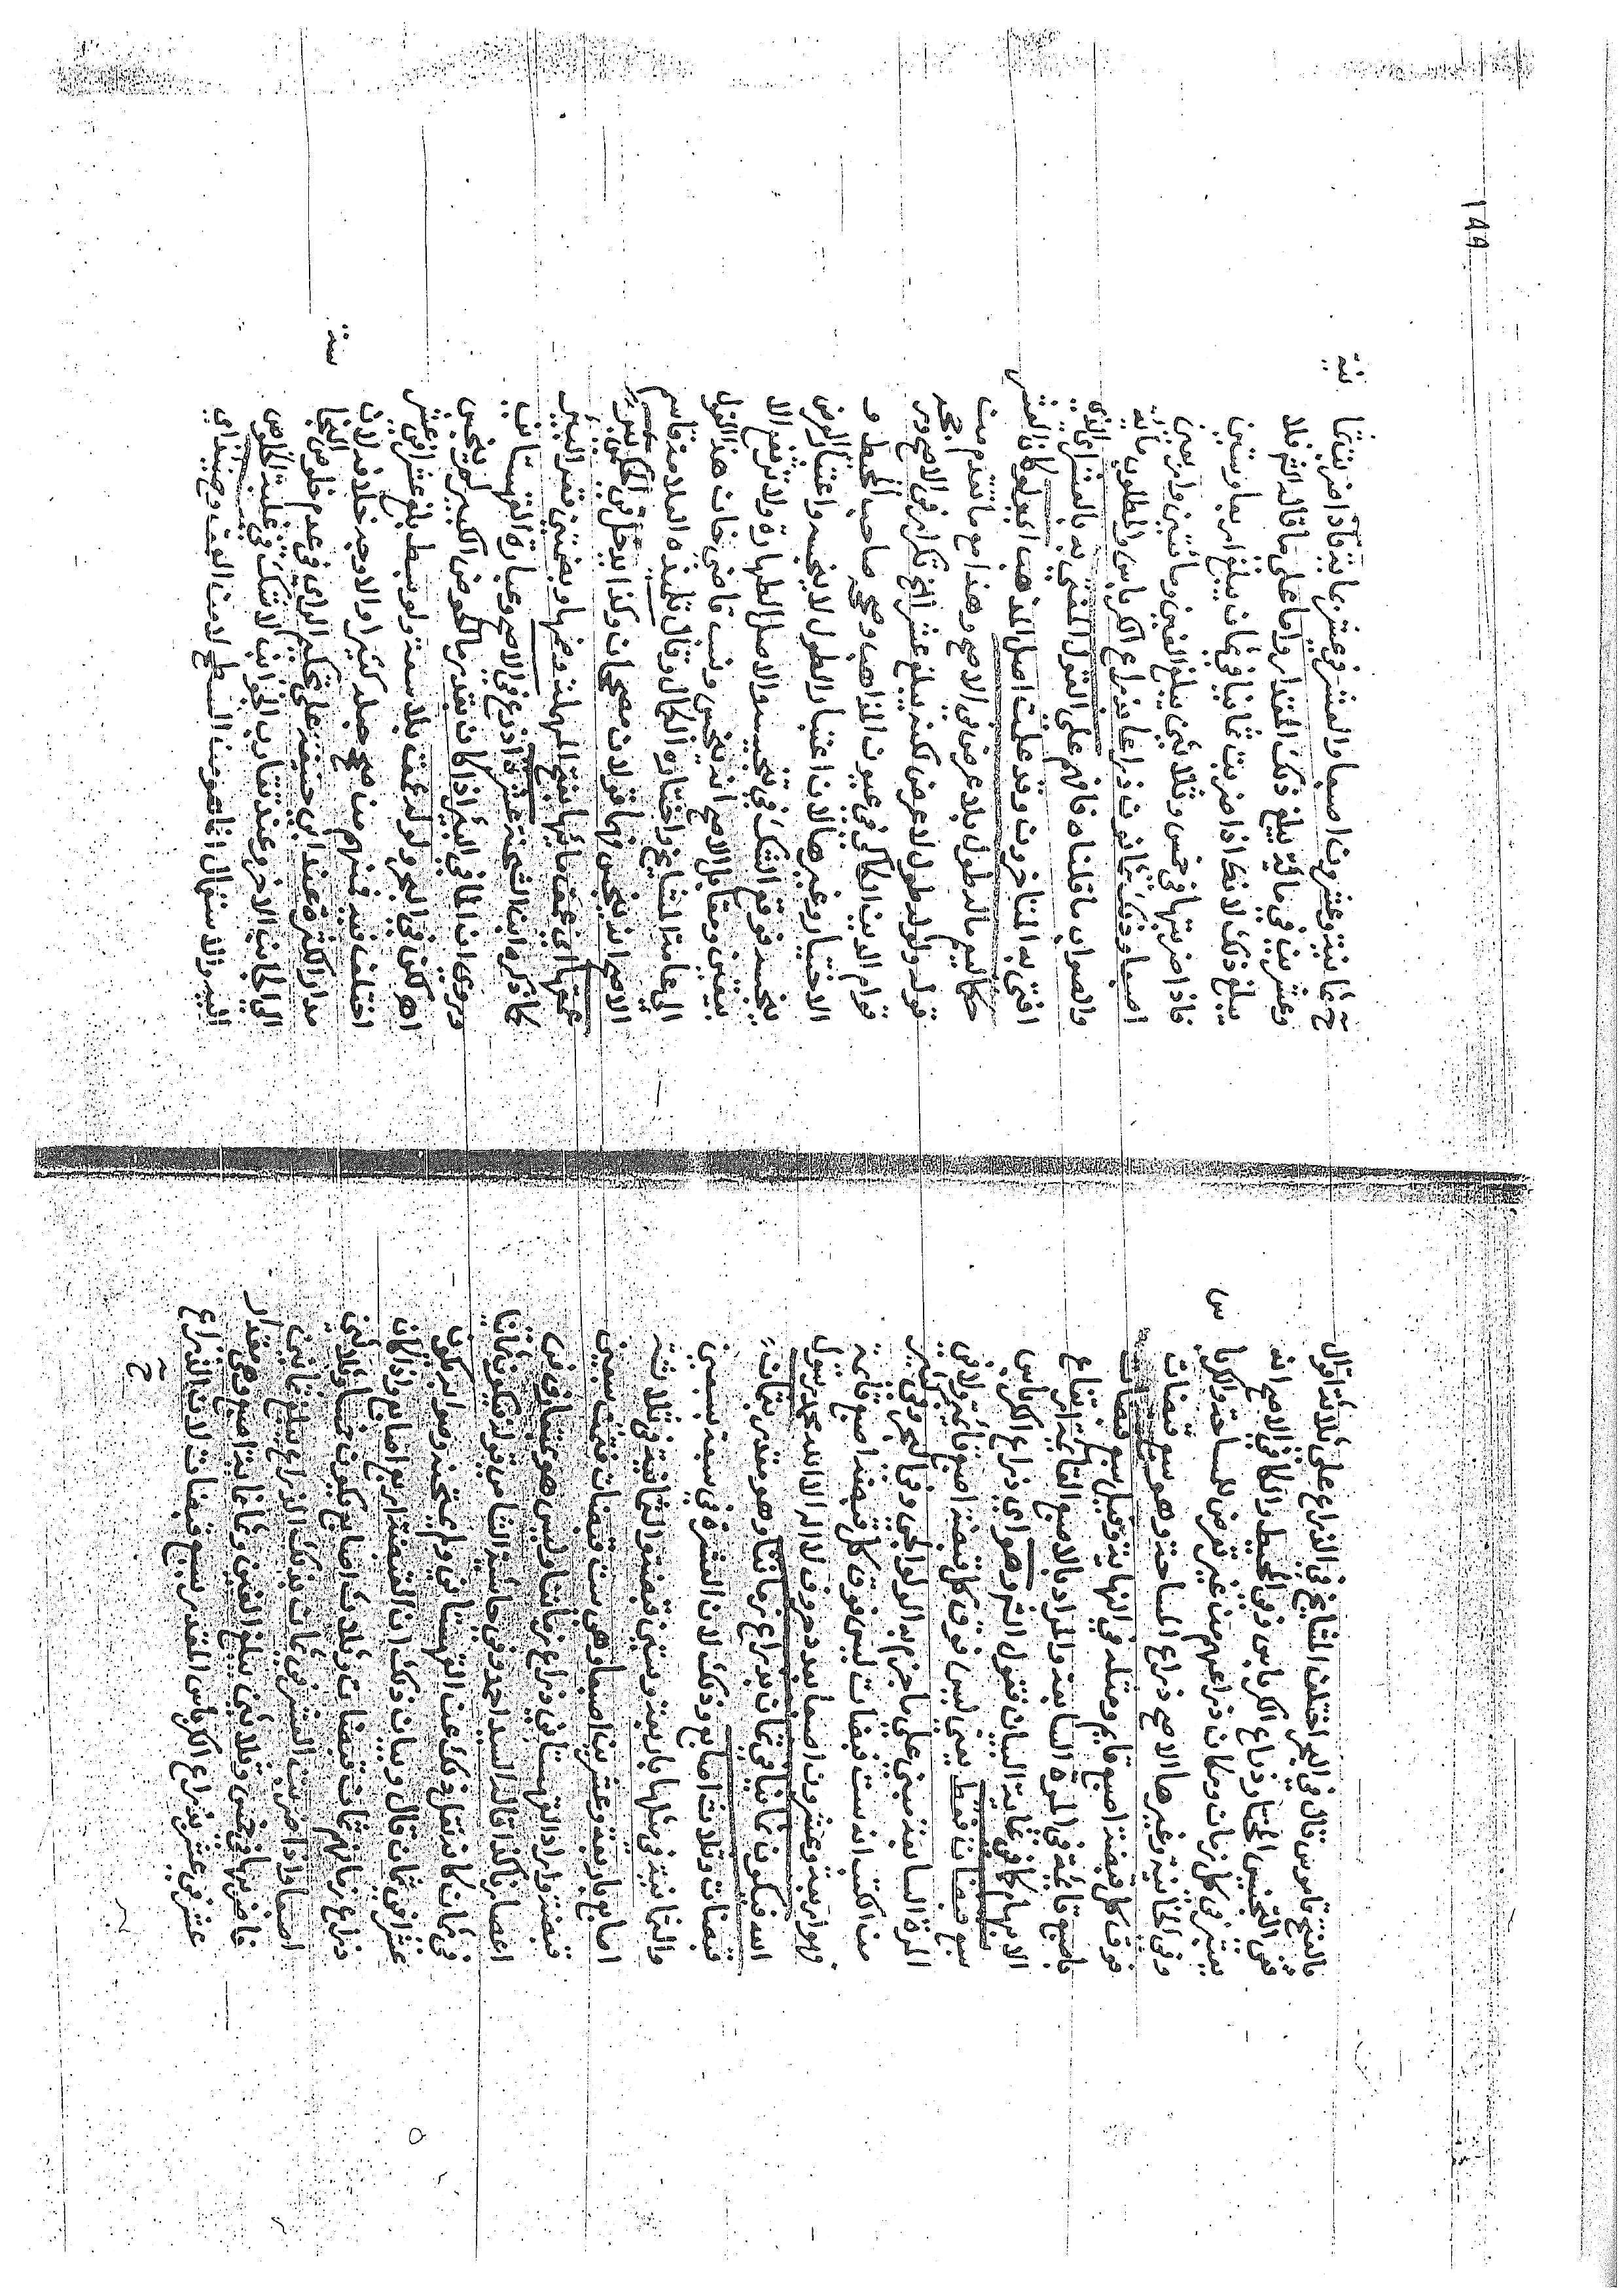 بالفتح قاموس قال في البحر اختلف المشايخ في الذراع على ثلاثة اقوال
ففي التجنيس المختار ذراع الكرباس وفي المحيط والكافي الاصح انه
يعتبر في كل زمان ومكان ذراعهم من غير تعرض للمساحة والكربا س
وفي الخانية وغيرها الاصح ذراع المساحة وهو سبع قبضات
فوق كل قبضة اصبع قائم ومثله في النهاية وقيل سبع قبضات
باصبع قائمة في المرة السابعة والمراد بالاصبع القائمة ارتفاع
الابهام كما في غاية البيان فقول الشرح وهو اي ذراع الكرباس
سبع قبضات فقط يعني ليس فوق كل قبضة اصبع قائمة ولا في
المرة السابعة مبني على ما جزم به الولوالجي وفي البحر وفي كثير
من الكتب انه ست قبضات ليس فوق كل قبضة اصبع قائمة
فهو اربعة وعشرون اصبعا بعدد حروف لا اله الا الله محمد رسول
الله فيكون ثمانيا في ثمان بذراع زماننا وهو مقدر بثمان
قبضات وثلاث اصابع وذلك لان العشرة في سبعة بسبعين
والثمانية في مثلها باربعة وستين قبضة والثمانية في ثلاثة
اصابع باربعة وعشرين اصبعا وهي ست قبضات فتمت سبعين
قبضة واراد القهستاني ذراع زماننا وليس هو
كذا قاله السيد احمد وفي حاشية الشامي قوله فيكون ثمانيا
في ثمان كانه نقل ذلك عن القهستاني ولم يمتحنه وصوابه يكون
عشرا في ثمان قال وبيان ذلك ان القبضة اربع اصابع واذا كان
ذراع زمانهم ثمان قبضات وثلاث اصابع يكون خمسا وثلاثين
اصبعا واذا ضربت العشر في ثمان بذلك الذراع يبلغ ثمانين
فاضربها في خمس وثلاثين يبلغ الفين وثمانماية اصبع وهي مقدار
عشر في عشر بذراع الكرباس المقدر بسبع قبضات لان الذراع
ح
١٩٩
ح ثمانية وعشرون اصبعا والعشر في عشر بماية فاذا ضربت ثما نية
وعشرين في ماية يبلغ ذلك المقدار واما على ما قاله الشرح فلا
يبلغ ذلك لانك اذا ضربت ثمانيا في ثمان يبلغ اربعا وستين
فاذا ضربتها في خمس وثلاثين يبلغ الفين ومأتين واربعين
اصبعا وذلك ثمانون ذراعا بذراع الكرباس والمطلوب ماية
والصواب ما قلناه فافهم على القول المفتى به بالعشر اي الذي
افتى به المتاخرون وقد علمت اصل المذهب اي ولو كان العشر
حكما ليعم ما له طول بلا عرض في الاصح وهذا مع ما تقدم من
قوله ولو له طول لا عرض لكنه يبلغ عشرا الخ تكرار في الاصح
قوام الدين الكاكي في عيون المذاهب وصححه صاحب المحيط و
الاختيار وغيرهما لان اعتبار الطول لا ينجسه واعتبار العرض
ينجسه فوقع الشك في تنجيسه والاصل الطهارة ولا تزول الا
بيقين ومقابل الاصح انه ينجس ونسب قاضي خان هذا القول
الى عامة المشايخ واختاره الكمال وقال تلميذه العلامة قاسم
الاصح انه ينجس فهما قولان مصححان وكذا
عمقها اي عمق مائها بفتح المهملة وضمها وبضمتين قعر البئر
كما ذكره ابن الشحنة عشرة اذرع في الاصح وعبارة القهستاني
وروي ان الماء في البئر اذا كان بقدر الحوض الكبير لم ينجس
اهـ لكن في البحر ولو له عمق بلا سعة ولو بسط بلغ عشرا في عشر
اختلف فيه فمنهم من صحح جعله كثيرا والاوجه خلافه لان
مدار الكثرة عند ابي حنيفة على تحكيم الراي في عدم خلوص النجا سة
الى الجانب الاخر وعند تقارب الجوانب لا شك في غلبة الخلوص
اليه والاستعمال انما هو من السطح لا من العمق وحينئذ اي